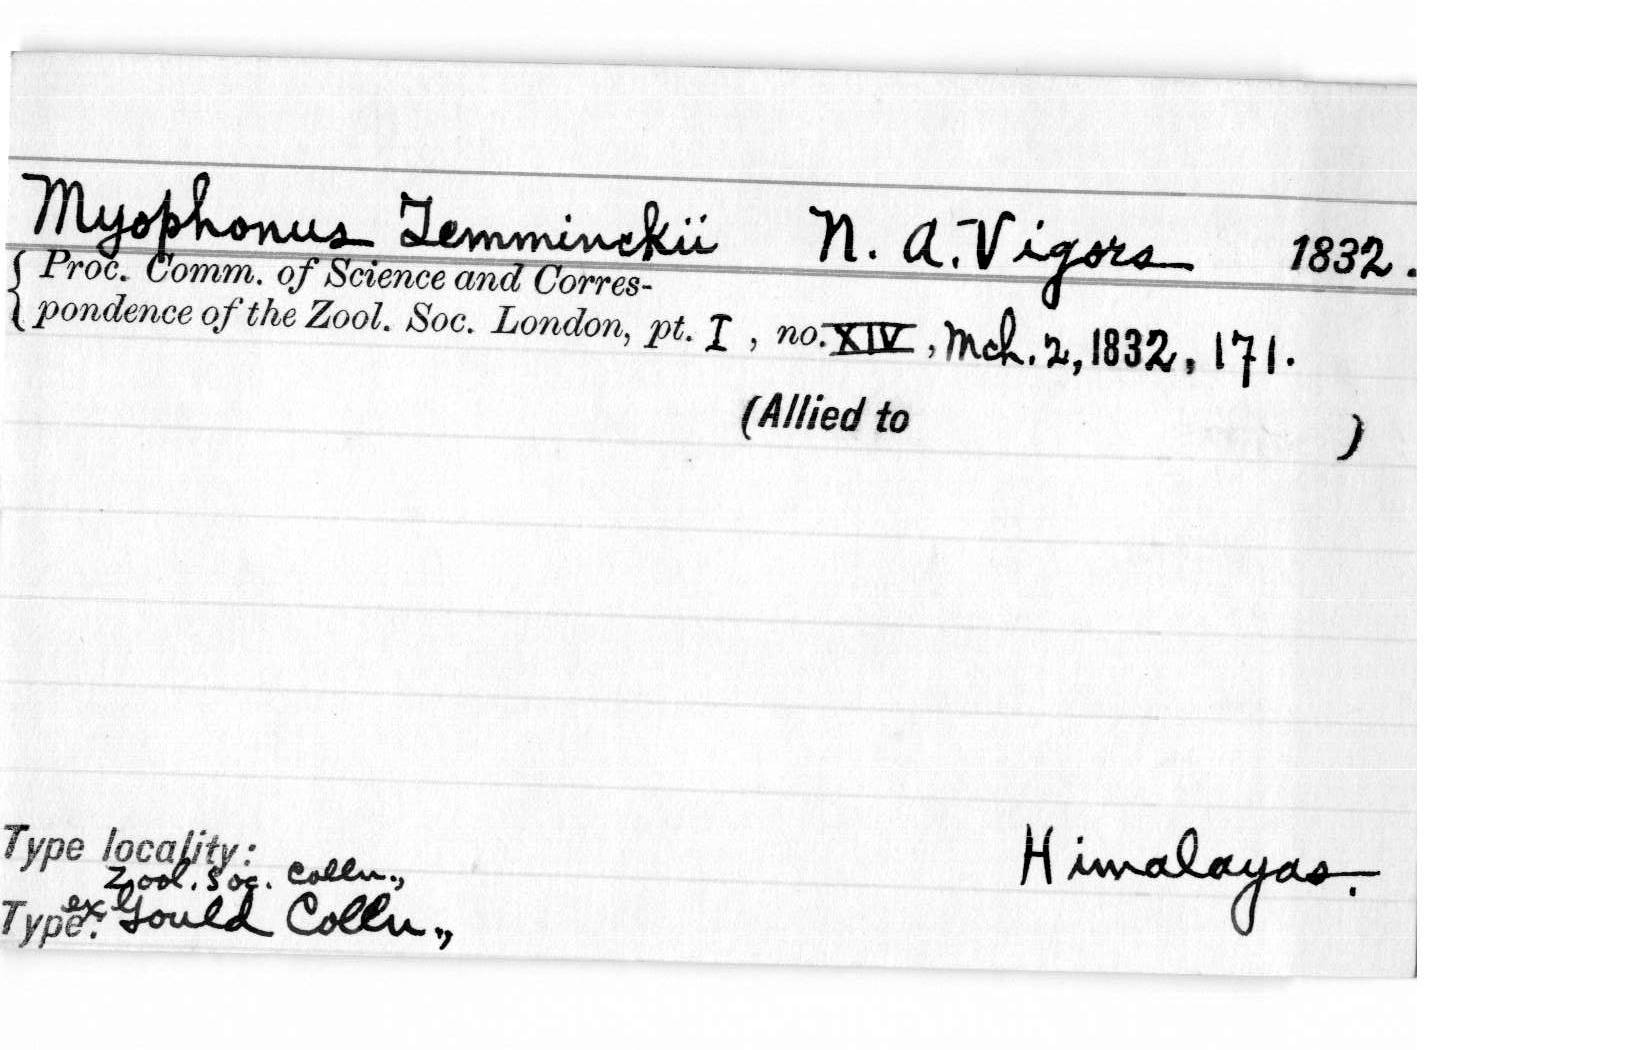 Myophonus Temminckii N. A. Vigors 1832.
Proc. Comm. of Science and Corres-
pondence of the Zool. Soc. London, pt. I, no. XIV, Mch. 2, 1832, 171.
(Allied to )
Type locality: Himalayas.
Zool. Soc. Colln.,
Type: ex Gould Colln.,